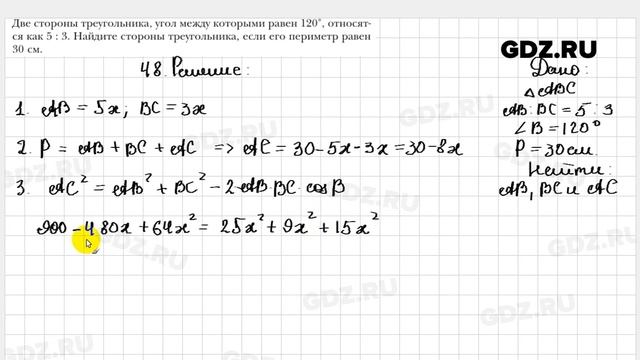 Две стороны треугольника, угол между которыми равен 120°, относят-
ся как 5 : 3. Найдите стороны треугольника, если его периметр равен
30 см.
GDZ.RU
48. Решение:
1. AB = 5x; BC = 3x
2. P = AB + BC + AC => AC = 30-5x-3x = 30-8x
3. AC² = AB² + BC² - 2·AB·BC·cosB
900 - 480x + 64x² = 25x² + 9x² + 15x²
Дано:
△ABC
AB:BC = 5:3
∠B = 120°
P = 30см.
Найти:
AB, BC и AC